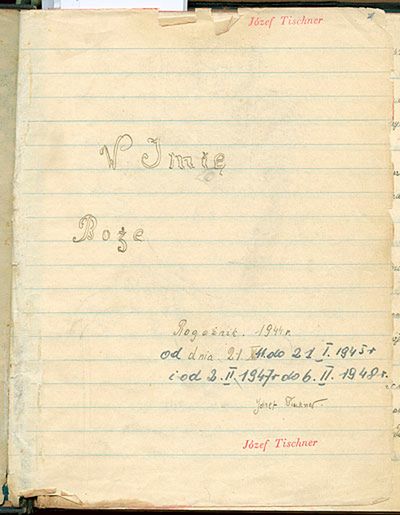 Józef Tischner
W Imię
Boże
Rogoźnik. 1944r.
od dnia 21 do 21 I. 1945r
i od 2. II. 1947r do 6. II. 1948r.
Józef Tischner.
Józef Tischner